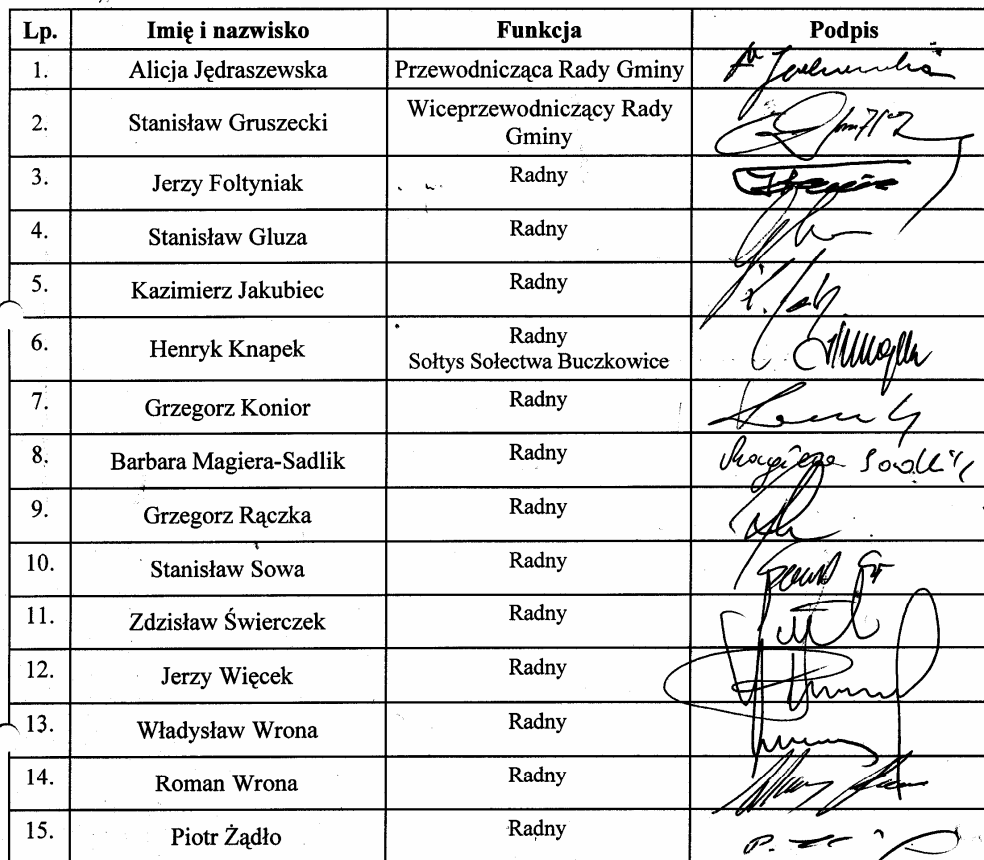 Lp. Imię i nazwisko Funkcja Podpis
1. Alicja Jędraszewska Przewodnicząca Rady Gminy
2. Stanisław Gruszecki Wiceprzewodniczący Rady
Gminy
3. Jerzy Foltyniak Radny
4. Stanisław Gluza Radny
5. Kazimierz Jakubiec Radny
6. Henryk Knapek Radny
Sołtys Sołectwa Buczkowice
7. Grzegorz Konior Radny
8. Barbara Magiera-Sadlik Radny Magiera Sadlik
9. Grzegorz Rączka Radny
10. Stanisław Sowa Radny
11. Zdzisław Świerczek Radny
12. Jerzy Więcek Radny
13. Władysław Wrona Radny
14. Roman Wrona Radny
15. Piotr Żądło Radny